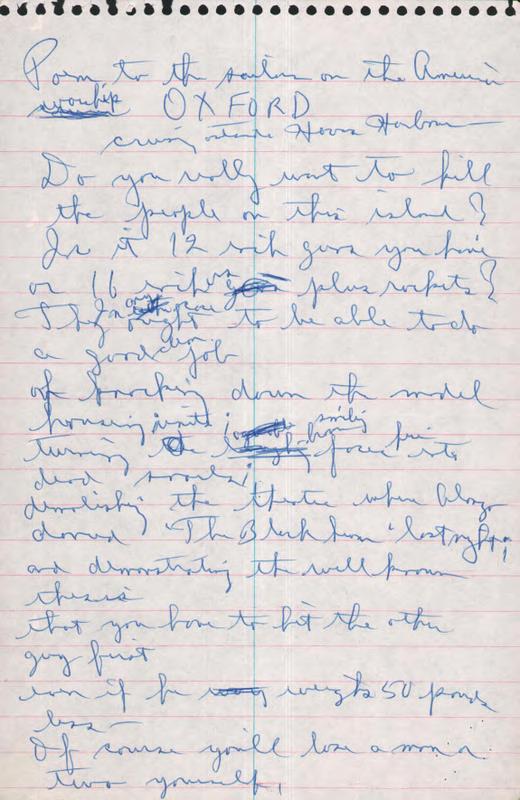 Poem to the sailors on the American
warship OXFORD
cruising outside Havana Harbour
Do you really want to kill
the people on this island?
Is it 12 inch guns you have
or 16 inchers plus rockets?
They ought to be able to do
a good clean job
of knocking down the model
housing units;
turning smiling faces into
dead snarls;
demolishing the theatre where Alonzo
danced "The Black Swan" last night;
and demonstrating the well known
thesis
that you have to hit the other
guy first
even if he weighs 50 pounds
less —
Of course you'll lose a man or
two yourself,